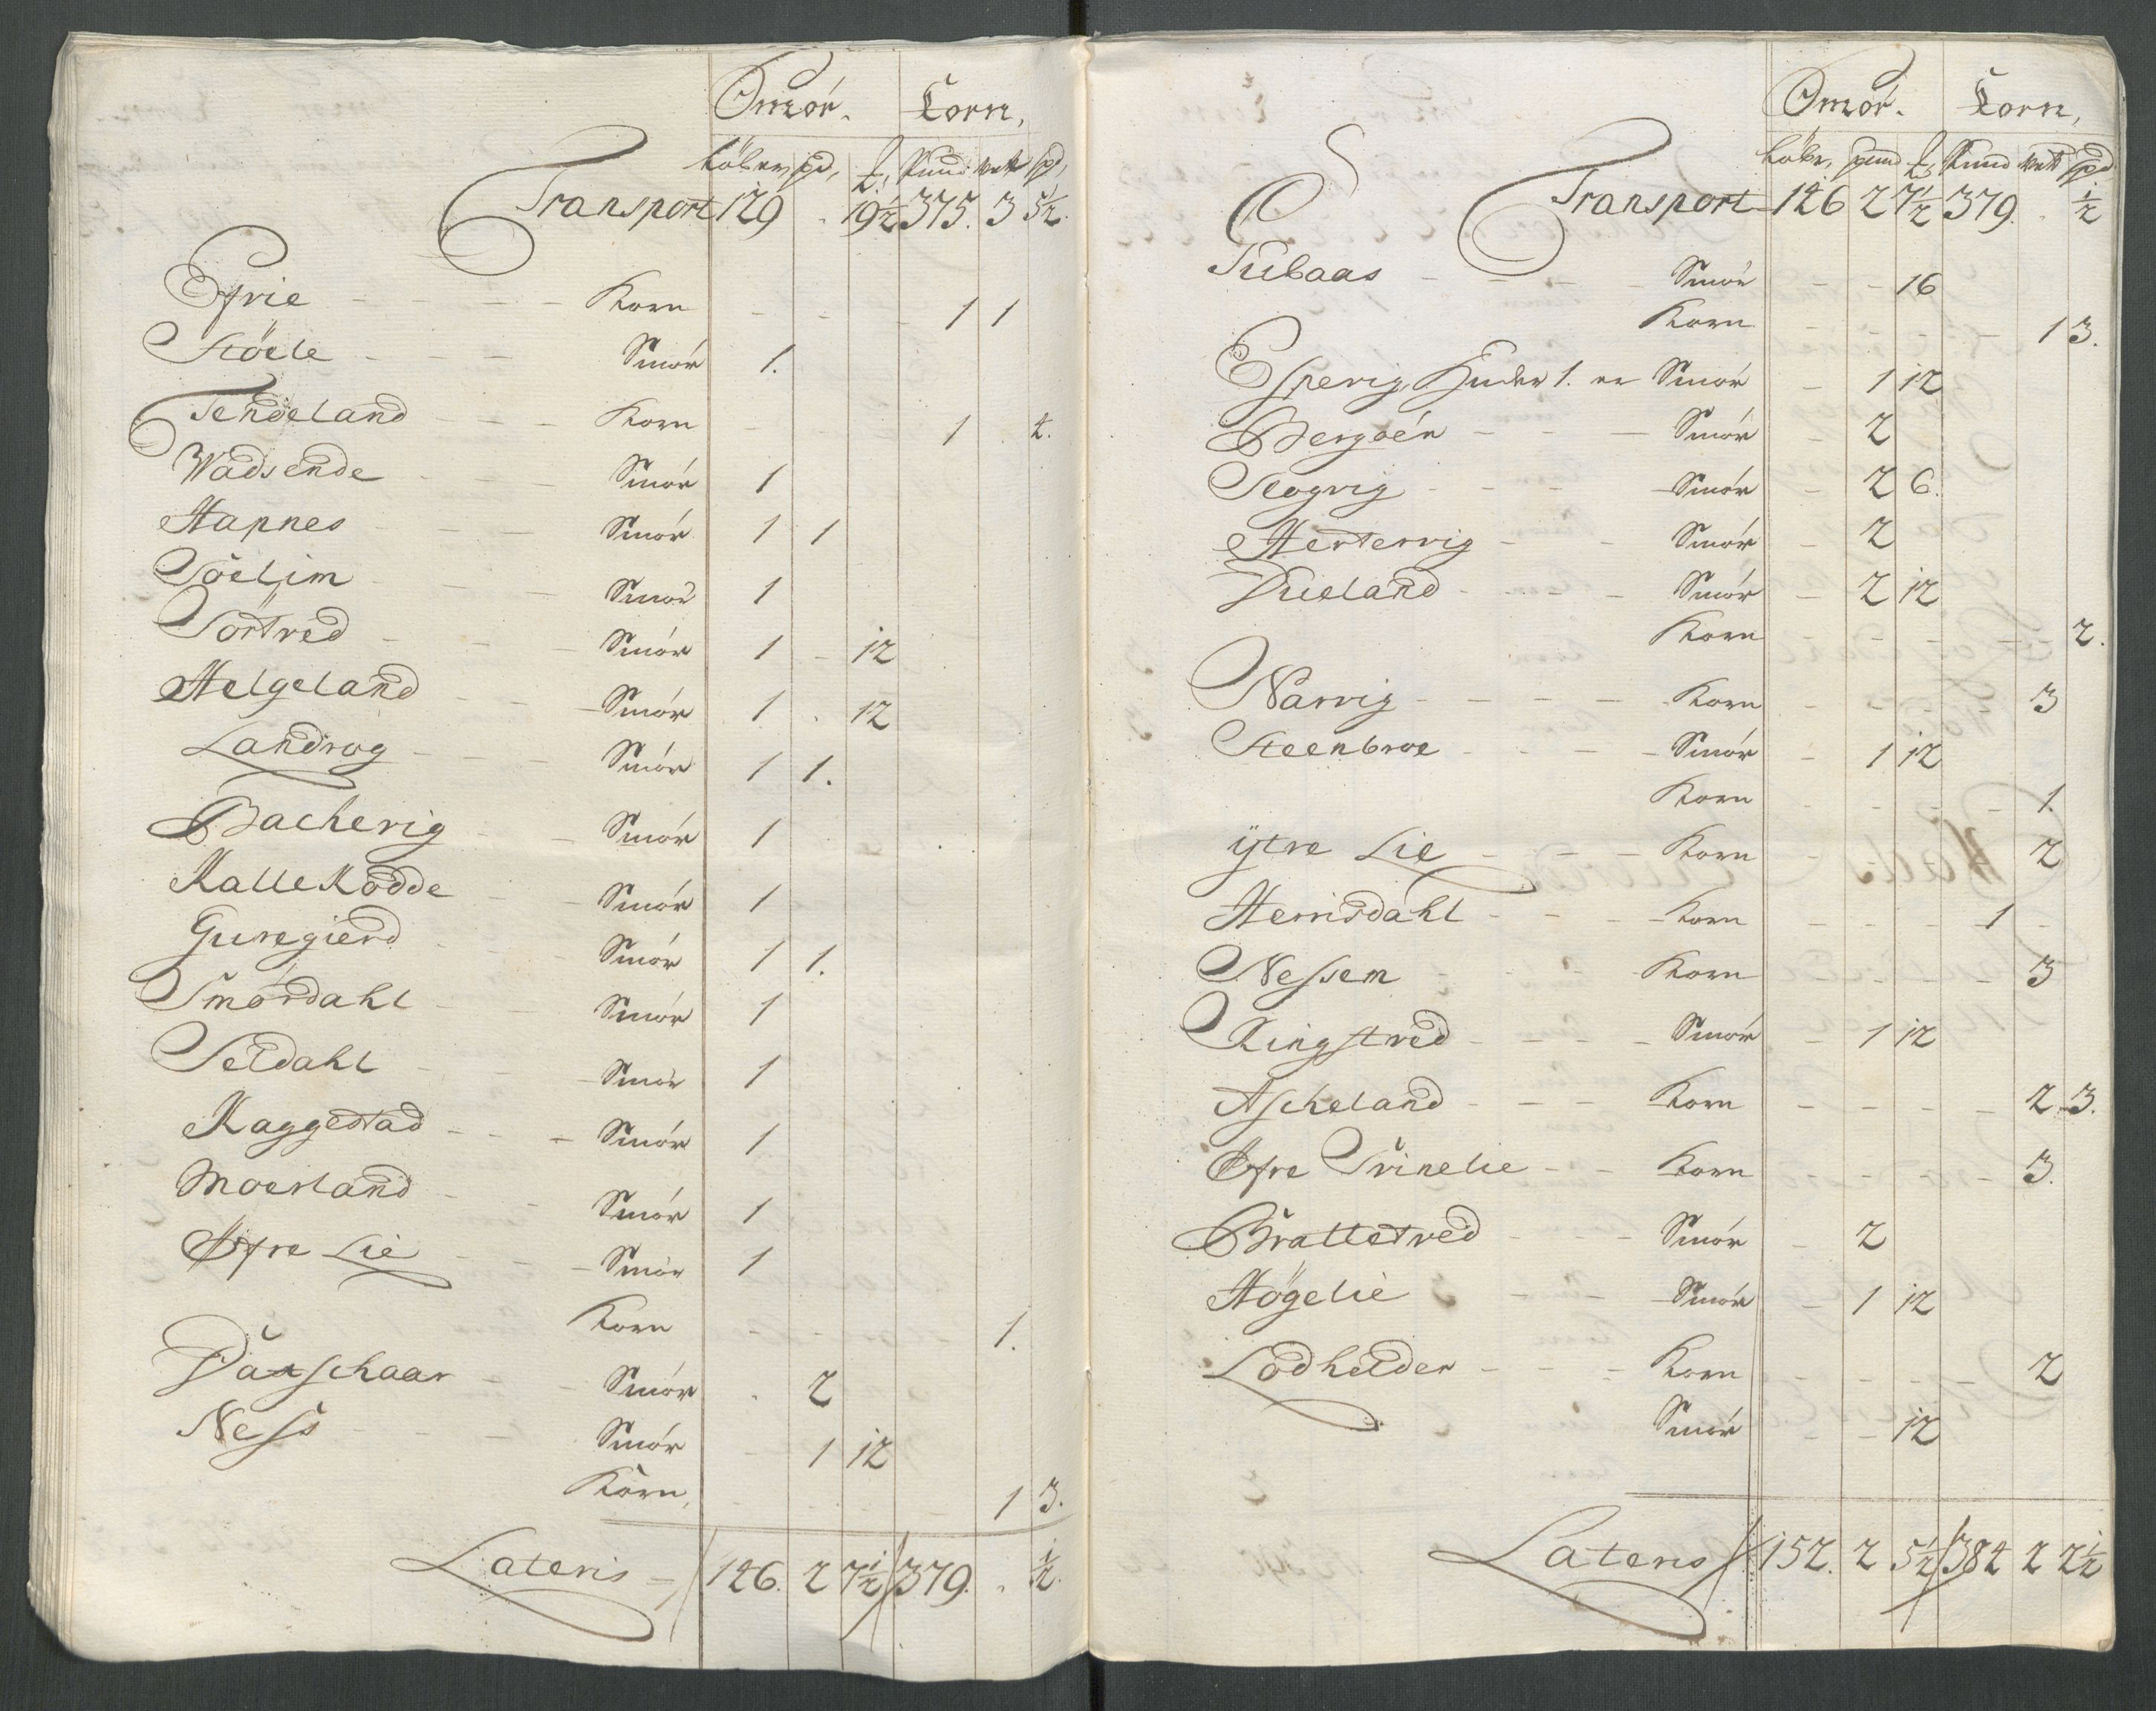 Smör. Korn,
Löber, pd, ℔, Pund: vett spd,
Transport 129 . 19½ 375. 3 5½.
Korn - - - 1 1
Smör 1.
Tendeland - - - Korn 1 . 4.
Wadsende - - - Smör 1
Hapnes - - - Smör 1 1
Söeljm - - - Smör 1
Törtved - - - Smör 1 - 12
Helgeland - - - Smör 1 . 12
Landvog - - - Smör 1 1.
Bachevig - - - Smör 1
Kallekodde - - - Smör 1
Guregierd - - - Smör 1 1.
Smördahl - - - Smör 1
Seldahl - - - Smör 1
Kaggestad - - - Smör 1
Moesland - - - Smör 1
Øfre Lie - - - Smör 1
Korn - - - 1.
Smör . 2
Ness - - - Smör - 1 12
Korn, - - - 1 3.
Lateris - 146. 2 7½ 379. . ½.
Smör. Korn,
Löbr, pund ℔, Pund vett spd
Transport 146 2 7½ 379. . ½
Tubaas - - - Smör - - 16
Korn - - - - 1 3.
Espevig, Huder 1. er Smör - 1 12
Bergøen - - - Smör - 2
Slogvig - - - Smör - 2 6.
Hertervig - - Smör - 2
Dueland - - - Smör - 2 12
Korn - - - - 2.
Narvig - - - - Korn - - - - 3
Steenbroe - - - Smör - 1 12
Korn - - - - 1.
ÿtre Lie - - - Korn - 2
Hervisdahl - - - Korn - - - - 1 -
Nessem - - - Korn - - - - 3
Ringstved - - - - Smör - 1 12
Ascheland - - - Korn - - - - 2 3.
Øfre Svinelie - - Korn - - - - 3.
Brattetved - - - Smör - 2
Högelie - - Smör - 1 12
Lodhelder - - - Korn - - - - 2
Smör - - 12
Lateris 152. 2 5½ 384 2 2½